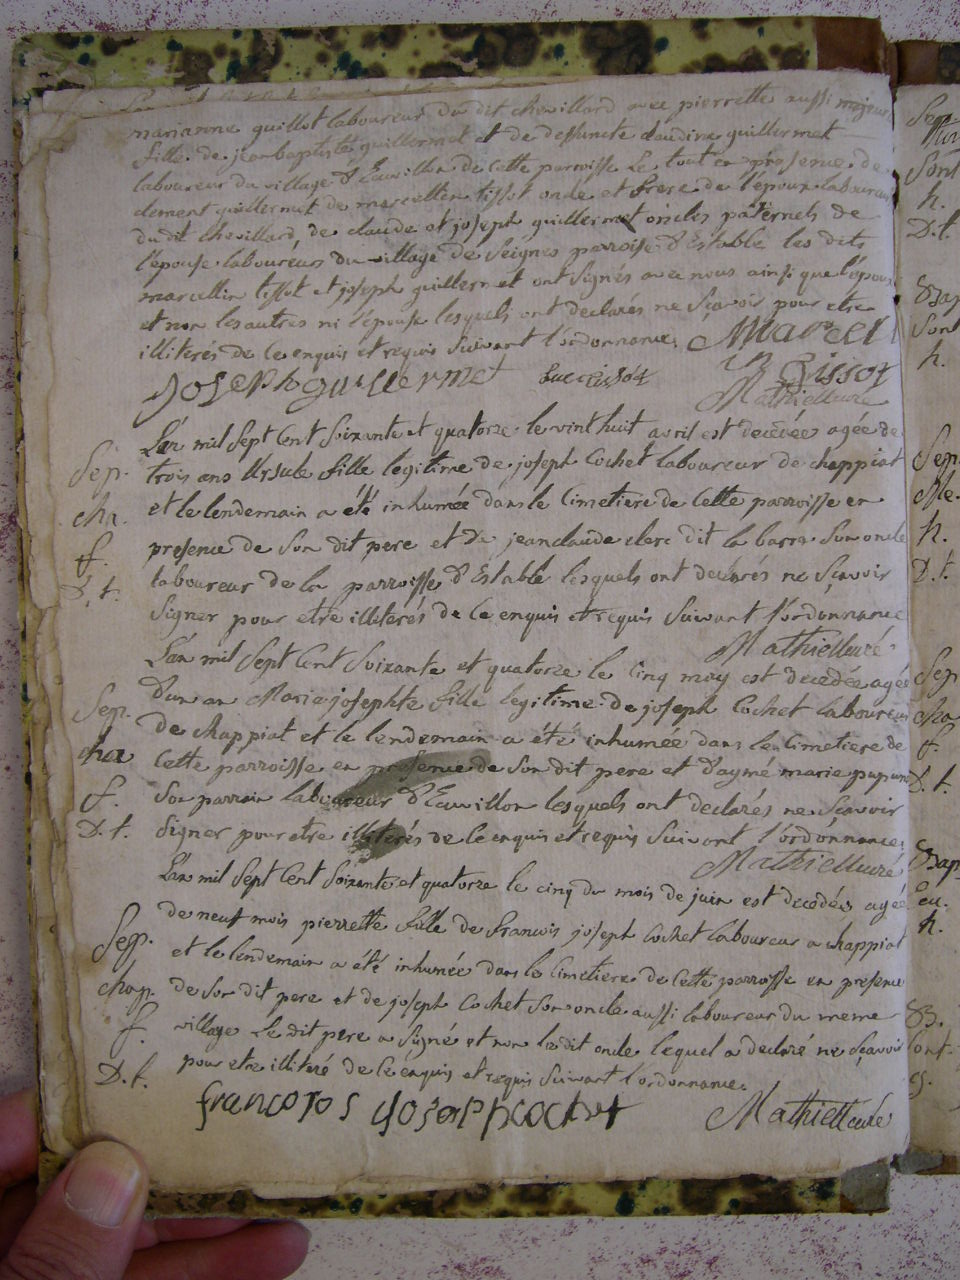 marianne guillot laboureur du dit chevillard avec pierrette aussi majeure
fille de jeanbaptiste guillermet et de deffuncte claudine guillermet
laboureur du village d'Eauvillon de cette parroisse Le tout en presence de
clement guillermet de marcellin tissot oncle et frere de l'epoux laboureurs
du dit chevillard, de claude et joseph guillermet oncles paternels de
l'épouse laboureurs du village de Seignes parroisse d'Estable les dits
marcellin tissot et joseph guillermet ont signés avec nous ainsi que l'époux
et non les autres ni l'épouse lesquels ont declarés ne sçavoir pour etre
illiterés de ce enquis et requis suivant l'ordonnance. Marcel
Tissot
Joseph guillermet Luc tissot
Mathieu curé
L'an mil sept cent soixante et quatorze le vint huit avril est decedée agée de
Sep. trois ans Ursule fille legitime de joseph Cochet laboureur de chappiat
cha. et le lendemain a été inhumée dans le cimetiere de cette parroisse en
f. presence de son dit pere et de jeanclaude clerc dit la barre son oncle
D. t. laboureur de la parroisse d'Estable lesquels ont declarés ne sçavoir
signer pour etre illiterés de ce enquis et requis suivant l'ordonnance
Mathieu curé.
L'an mil sept cent soixante et quatorze le cinq may est decedée agée
Sep. d'un an Marie josephte fille legitime de joseph Cochet laboureur
de chappiat et le lendemain a été inhumée dans le cimetiere de
cha cette parroisse en presence de son dit pere et d'aymé marie
f. son parrain laboureur d'Eauvillon lesquels ont declarés ne sçavoir
D. t. signer pour etre illiterés de ce enquis et requis suivant l'ordonnance.
Mathieu curé
L'an mil sept cent soixante et quatorze le cinq du mois de juin est decedée agée
Sep. de neuf mois pierrette fille de francois joseph Cochet laboureur a chappiat
et le lendemain a été inhumée dans le cimetiere de cette parroisse en presence
chap. de son dit pere et de joseph Cochet son oncle aussi laboureur du meme
f. village Le dit pere a signé et non le dit oncle lequel a declaré ne sçavoir
D. t. pour etre illiteré de ce enquis et requis suivant l'ordonnance.
francois joseph cochet Mathieu curé
Sep.
Sont
h.
D. t.
Bap
Sont
h.
Sep.
h.
D. t.
Sep
cha
f.
D. t.
Bap
eu.
h.
B.